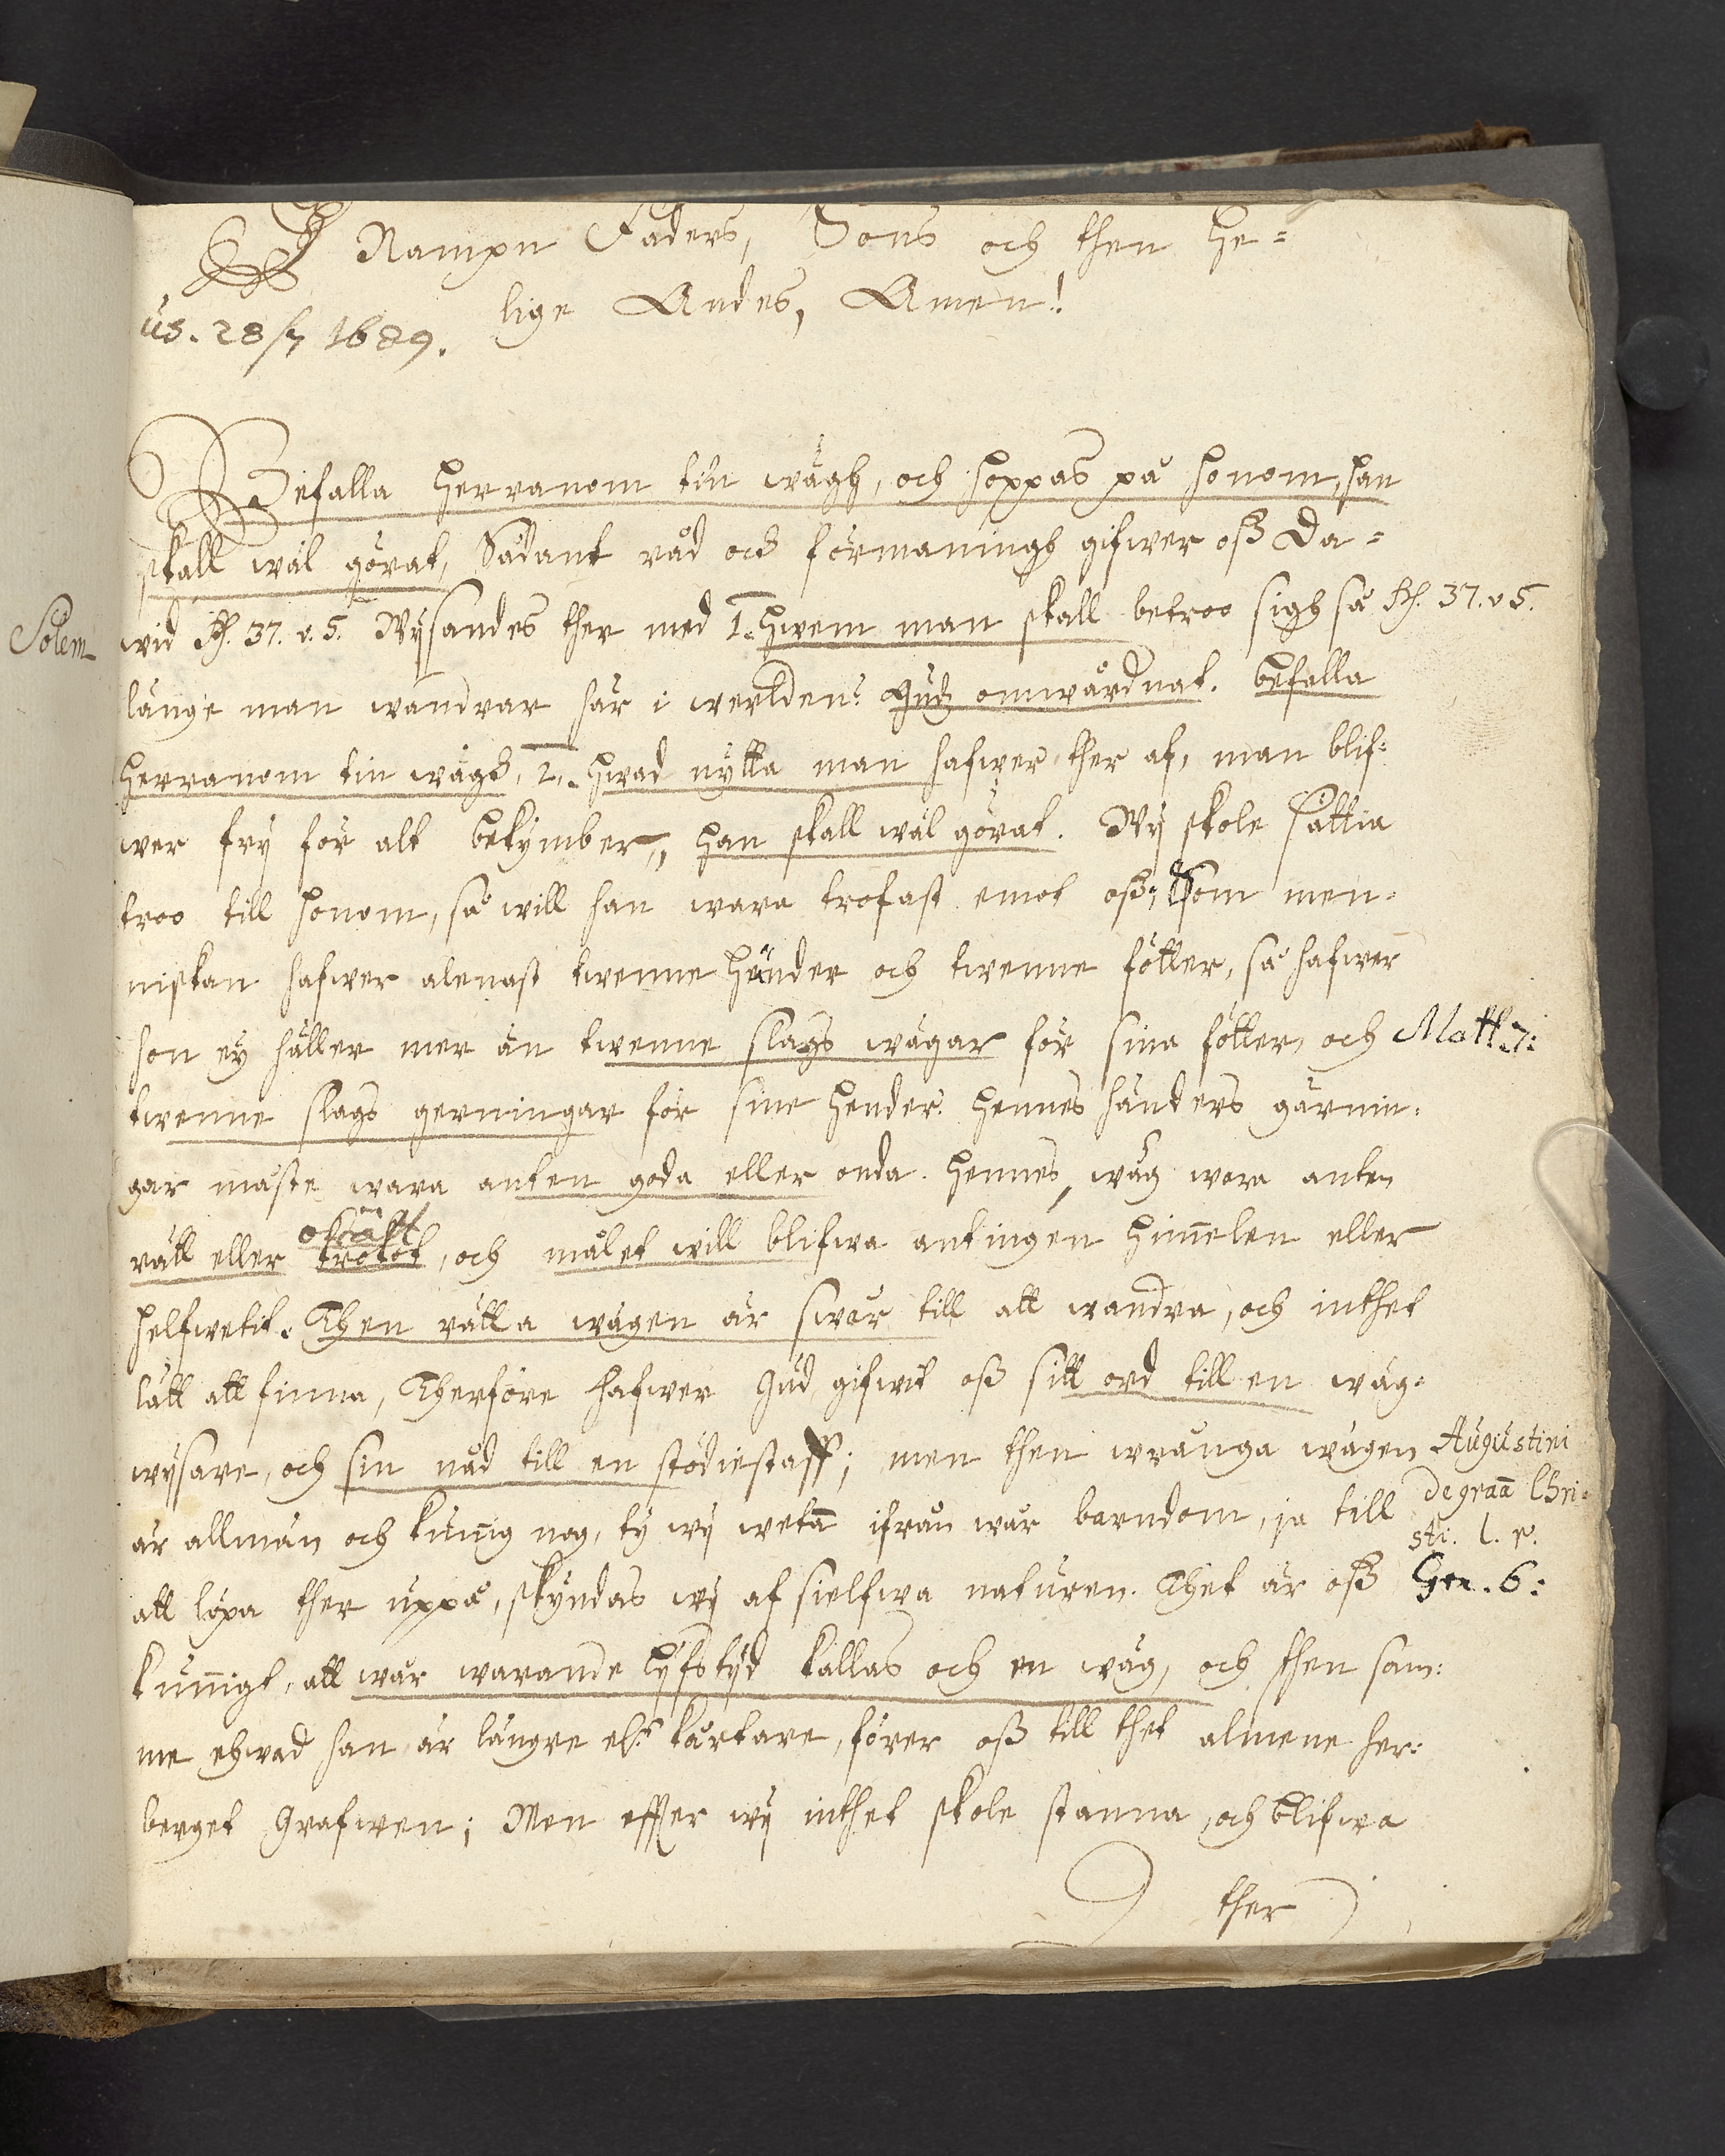 I Nampn Faders, Sons och then He=
lige Andes, Amen!
us. 28/7 1689.
Befalla Herranom tin wägh, och hoppas på honom, han
skall wäl görat, Sådant råd och förmaningh gifwer oß Da=
wid Ps. 37. v. 5. Wÿsandes ther med 1. Hwem man skall betroo sigh så
Ps. 37. v 5.
Solem
länge man wandrar här i werlden? Gudz omwårdnat. Befalla
Herranom tin wägh, 2. Hwad nÿtta man hafwer ther af, man blif=
wer frÿ för alt bekÿmber, Han skall wäl görat. Wÿ skole sättia
troo till honom, så will han wara trofast emot oß; Som men=
niskan hafwer alenast twenne händer och twenne fötter, så hafwer
hon eÿ häller mer än twenne slags wägar för sina fötter, och
Matth. 7:
twenne slags gerningar för sine hender. Hennes händers gärnin=
gar måste wara anten goda eller onda. Hennes wäg wara anten
rätt eller orätt, och målet will blifwa antingen Him̄elen eller
Helfwetit. Then rätta wägen är swår till att wandra, och inthet
lätt att finna, Therföre hafwer Gud gifwit oß sitt ord till en wäg=
wÿsare, och sin nåd till en stödiestaff; men then wrånga wägen
Augustini
de graā Chri=
sti. l. 1.
är allmän och kun̄ig nog, tÿ wÿ wetā ifrån wår barndom, ja till
att löpa ther uppå, skÿndas wÿ af sielfwa naturen. Thet är oß
Gen. 6:
kun̄igt, att wår warande lÿfstÿd kallas och en wäg, och then sam=
me ehwad han är längre elr kårtare, förer oß till thet almene her=
berget Grafwen; Men effter wÿ inthet skole stanna, och blifwa
ther